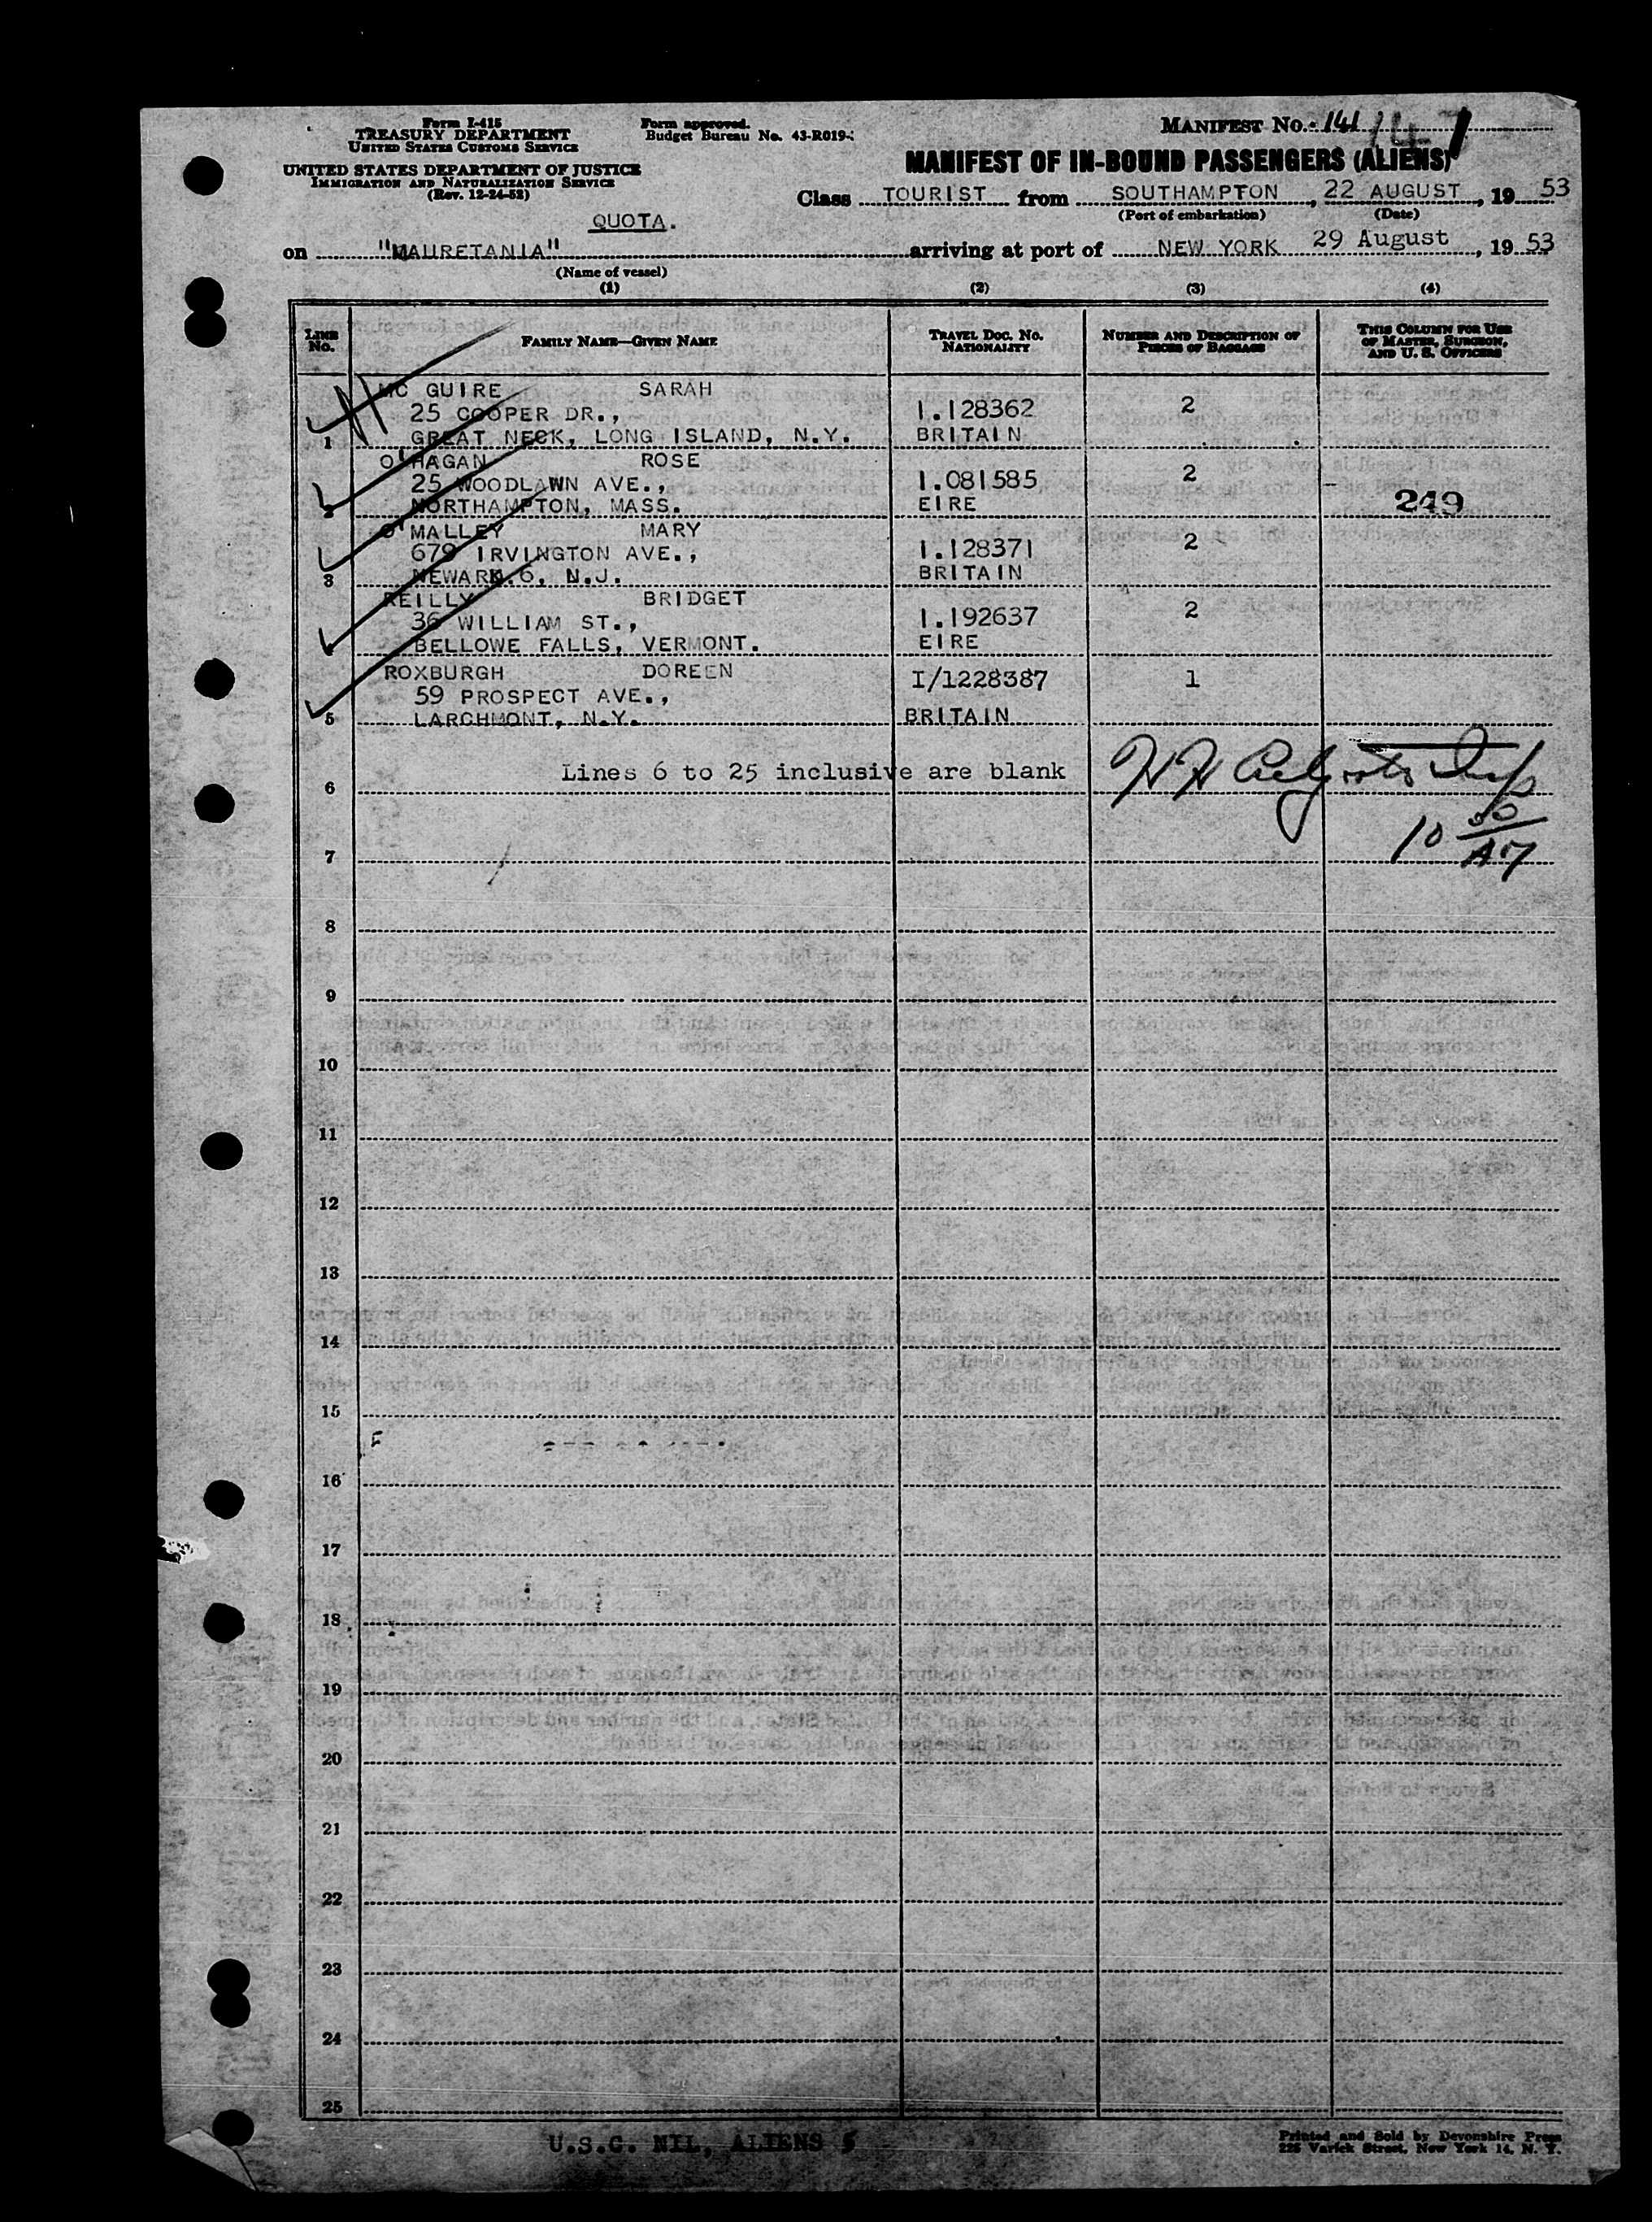 Form I-415
TREASURY DEPARTMENT
UNITED STATES CUSTOMS SERVICE
UNITED STATES DEPARTMENT OF JUSTICE
IMMIGRATION AND NATURALIZATION SERVICE
(Rev. 12-24-52)
Form approved.
Budget Bureau No. 43-R019-
MANIFEST No. 141
MANIFEST OF IN-BOUND PASSENGERS (ALIENS)
Class TOURIST from SOUTHAMPTON, 22 AUGUST, 19 53
(Port of embarkation) (Date)
QUOTA.
on "MAURETANIA" arriving at port of NEW YORK 29 August, 19 53
(Name of vessel)
(1) (2) (3) (4)
LINE No. FAMILY NAME—GIVEN NAME TRAVEL DOC. NO. NATIONALITY NUMBER AND DESCRIPTION OF PIECES OF BAGGAGE THIS COLUMN FOR USE OF MASTER, SURGEON, AND U. S. OFFICERS
MC GUIRE SARAH
25 COOPER DR., 1.128362 2
1 GREAT NECK, LONG ISLAND, N.Y. BRITAIN
O'HAGAN ROSE
25 WOODLAWN AVE., 1.081585 2
2 NORTHAMPTON, MASS. EIRE 249
O'MALLEY MARY
679 IRVINGTON AVE., 1.128371 2
3 NEWARK.6, N.J. BRITAIN
REILLY BRIDGET
36 WILLIAM ST., 1.192637 2
BELLOWE FALLS, VERMONT. EIRE
ROXBURGH DOREEN
59 PROSPECT AVE., I/1228387 1
5 LARCHMONT, N.Y. BRITAIN
Lines 6 to 25 inclusive are blank
6
10 00
7
8
9
10
11
12
13
14
15
16
17
18
19
20
21
22
23
24
25
U.S.C. NIL, ALIENS 5
Printed and Sold by Devonshire Press
225 Varick Street, New York 14, N. Y.